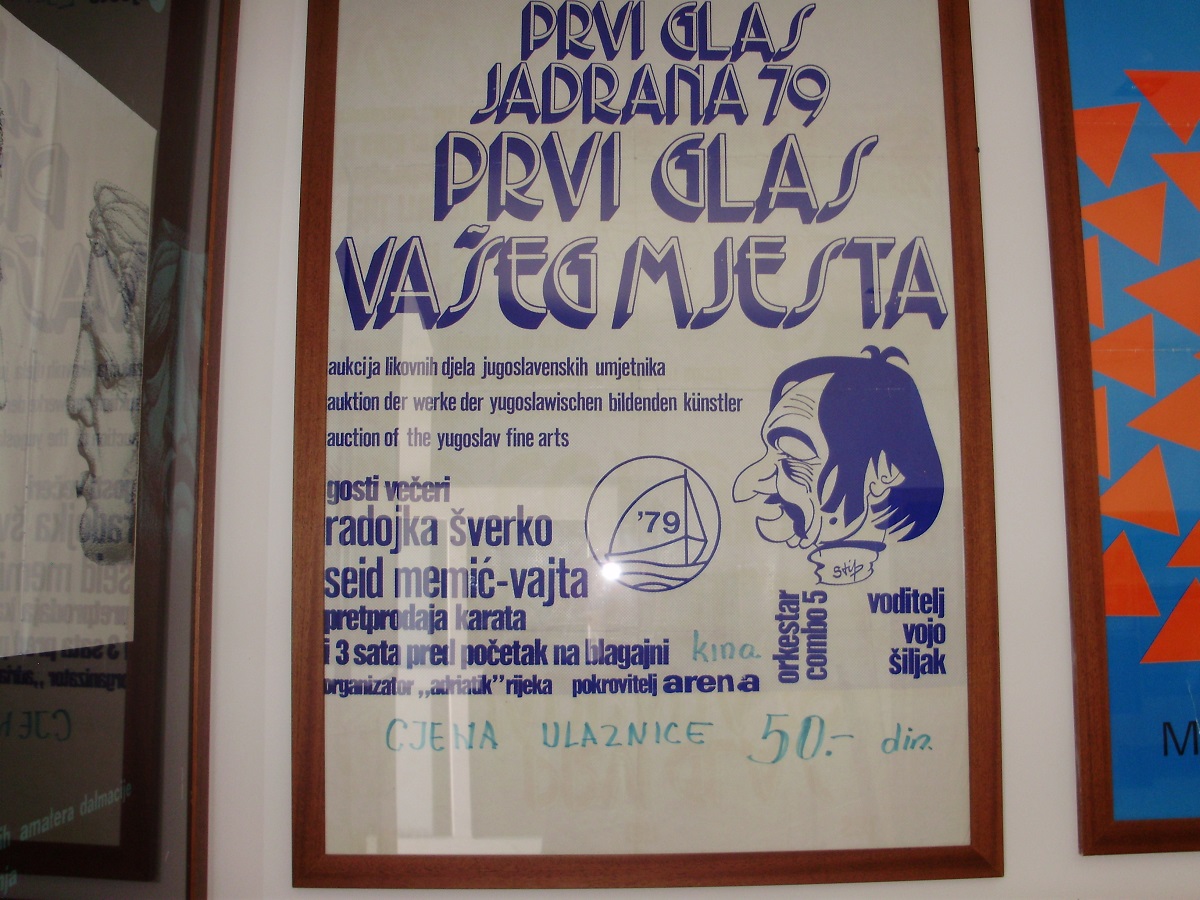 PRVI GLAS
JADRANA 79
PRVI GLAS
VAŠEG MJESTA
aukcija likovnih djela jugoslavenskih umjetnika
auktion der werke der yugoslawischen bildenden künstler
auction of the yugoslav fine arts
gosti večeri
radojka šverko
seid memić-vajta
'79
stip
pretprodaja karata
i 3 sata pred početak na blagajni kina
organizator „adriatik” rijeka pokrovitelj arena
orkestar
combo 5
voditelj
vojo
šiljak
CJENA ULAZNICE 50.- din.
ih amatera dalmacije
M